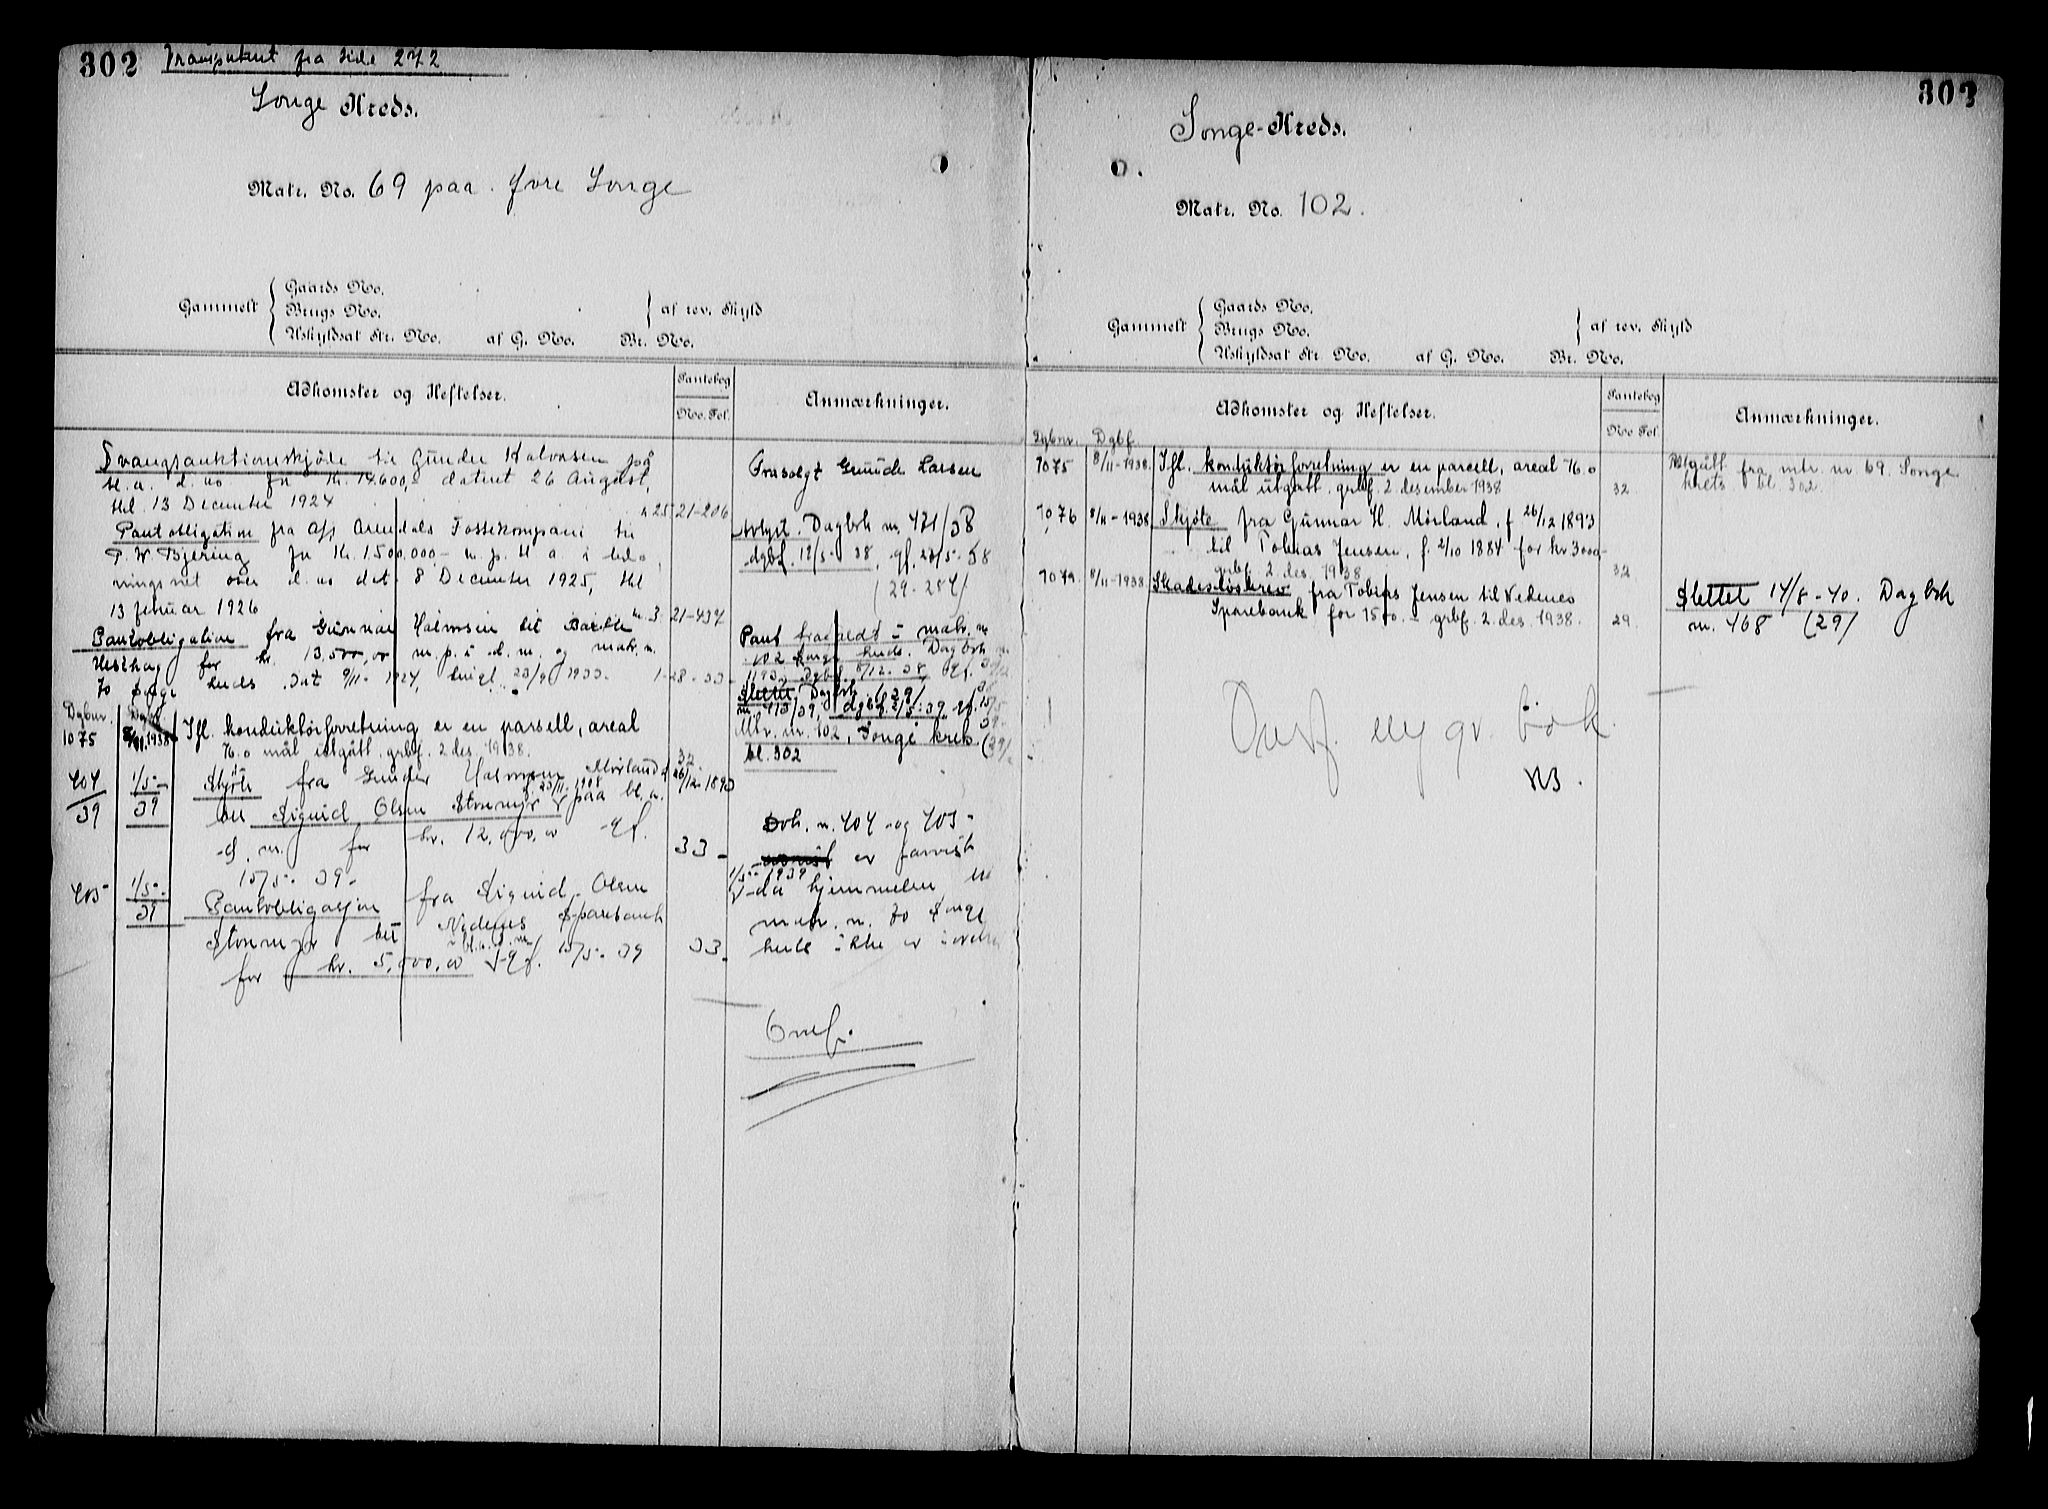 302 Transportert fra side 272
Songe Kreds.
Matr. No. 69 paa Øvre Songe
Gammelt
Gaards No.
Brugs No.
Uskyldsat Str. No. af G. No. Br. No.
af rev. Skyld
Adkomster og Heftelser.
Pantebog
No. Fol.
Anmærkninger.
Tvangsauktionsskjøde til Gunder Halvorsen på
M. a. d. No for Kr. 14.600,- dateret 26 August,
thl. 13 December 1924
n 25 21-206
Frasolgt Gunder Larsen
Pantobligation fra A/S Arendals Fossekompani til
P. W Bjering for Kr. 1500,000,- m. p. bl a. i led-
ningsnet over d. no dat 8 December 1925, thl
13 februar 1926
n. 3 21-437
Avlyst. Dagbok nr. 421/38
dgbf. 12/5-38, gf. 23/5-38
(29-287)
Pantobligation fra Gunnar Halvorsen til Bertha
Hesthag for kr. 13,500,00 m. p. i d. m. og matr. n.
70 Songe kreds. Dat 9/11-1927, tingl. 23/9 1933.
1-28-33-
Pant frafaldt i matr. nr
102 Songe kreds. Dagbok nr.
1193, Dgbf. 8/12-38, gf.
Slettet, Dagbok
nr. 413/39, dgbf. 2/5-39, gf. 15/5
39- (29)
Dgbnr. Dgbf
1075 8/11.1938 Ifl. konduktørforretning er en parsell, areal
76.0 mål utgått. grbf. 2 des. 1938.
32.
Mtr. nr. 102, Songe krets.
bl. 302
404/39 1/5-39 Skjøte fra Gunder Halvorsen Mørland f. 26/12-1893
til Sigurd Olsen Stormyr f. 23/11.1908 paa bl. a.
d. m. for kr. 12,000,00 gf.
15/5-39-
33-
Dok. nr. 404 og 405-
er forevist
1/5-1939
da hjemmelen til
matr. n. 70 Songe
kreds ikke er i orden
405- 1/5-39 Pantobligasjon fra Sigurd Olsen
Stormyr til Nedenes Sparebank
for kr. 5,000,00 i bl. a. d. m. gf. 15/5-39
33-
Overf.
302
Songe-Kreds.
Matr. No. 102.
Gammelt
Gaards No.
Brugs No.
Uskyldsat Str. No. af G. No. Br. No.
af rev. Skyld
Adkomster og Heftelser.
Pantebog
No Fol.
Anmærkninger.
Dgbnr. Dgbf
1075 8/11-1938. Ifl. konduktørforretning er en parcell, areal 76.0
mål utgått. grbf. 2 desember 1938
32
Utgått fra mtr. nr 69. Songe
krets bl. 302.
1076 8/11-1938 Skjøte fra Gunnar H. Mørland, f 26/12 1893
til Tobias Jensen, f. 2/10 1884 for kr 3000-
grbf. 2 des. 1938
32
1079. 8/11-1938. Skadesløsbrev fra Tobias Jensen til Nedenes
Sparebank for 1500.- grbf. 2. des. 1938.
29.
Slettet 14/8-40. Dagbok
nr. 468 (29)
Overf. ny gr. bok.
NB.